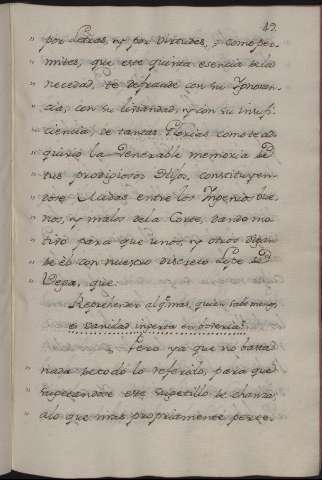 49.
por Letras, y por Virtudes, y como per-
mites, que este quinta esencia de la
necedad, te defraude con su Ignoran-
cia, con su liviandad, y con su insufi-
ciencia, de tantas Glorias como te ad-
quirió la Venerable memoria de
tus prodigiosos Hijos, constituyen-
dose Midas entre los Ingenios bue-
nos, y malos de la Corte, dando mo-
tivo para que unos, y otros digan
de él con nuestro discreto Lope de
Vega, que.
Reprehender al q.e mas, quien sabe menos,
es vanidad inxerta en boveria.
Pero ya que no basta
nada de todo lo referido, para que
sugetandose este sugetillo de chanza,
a lo que mas propriamente perte-